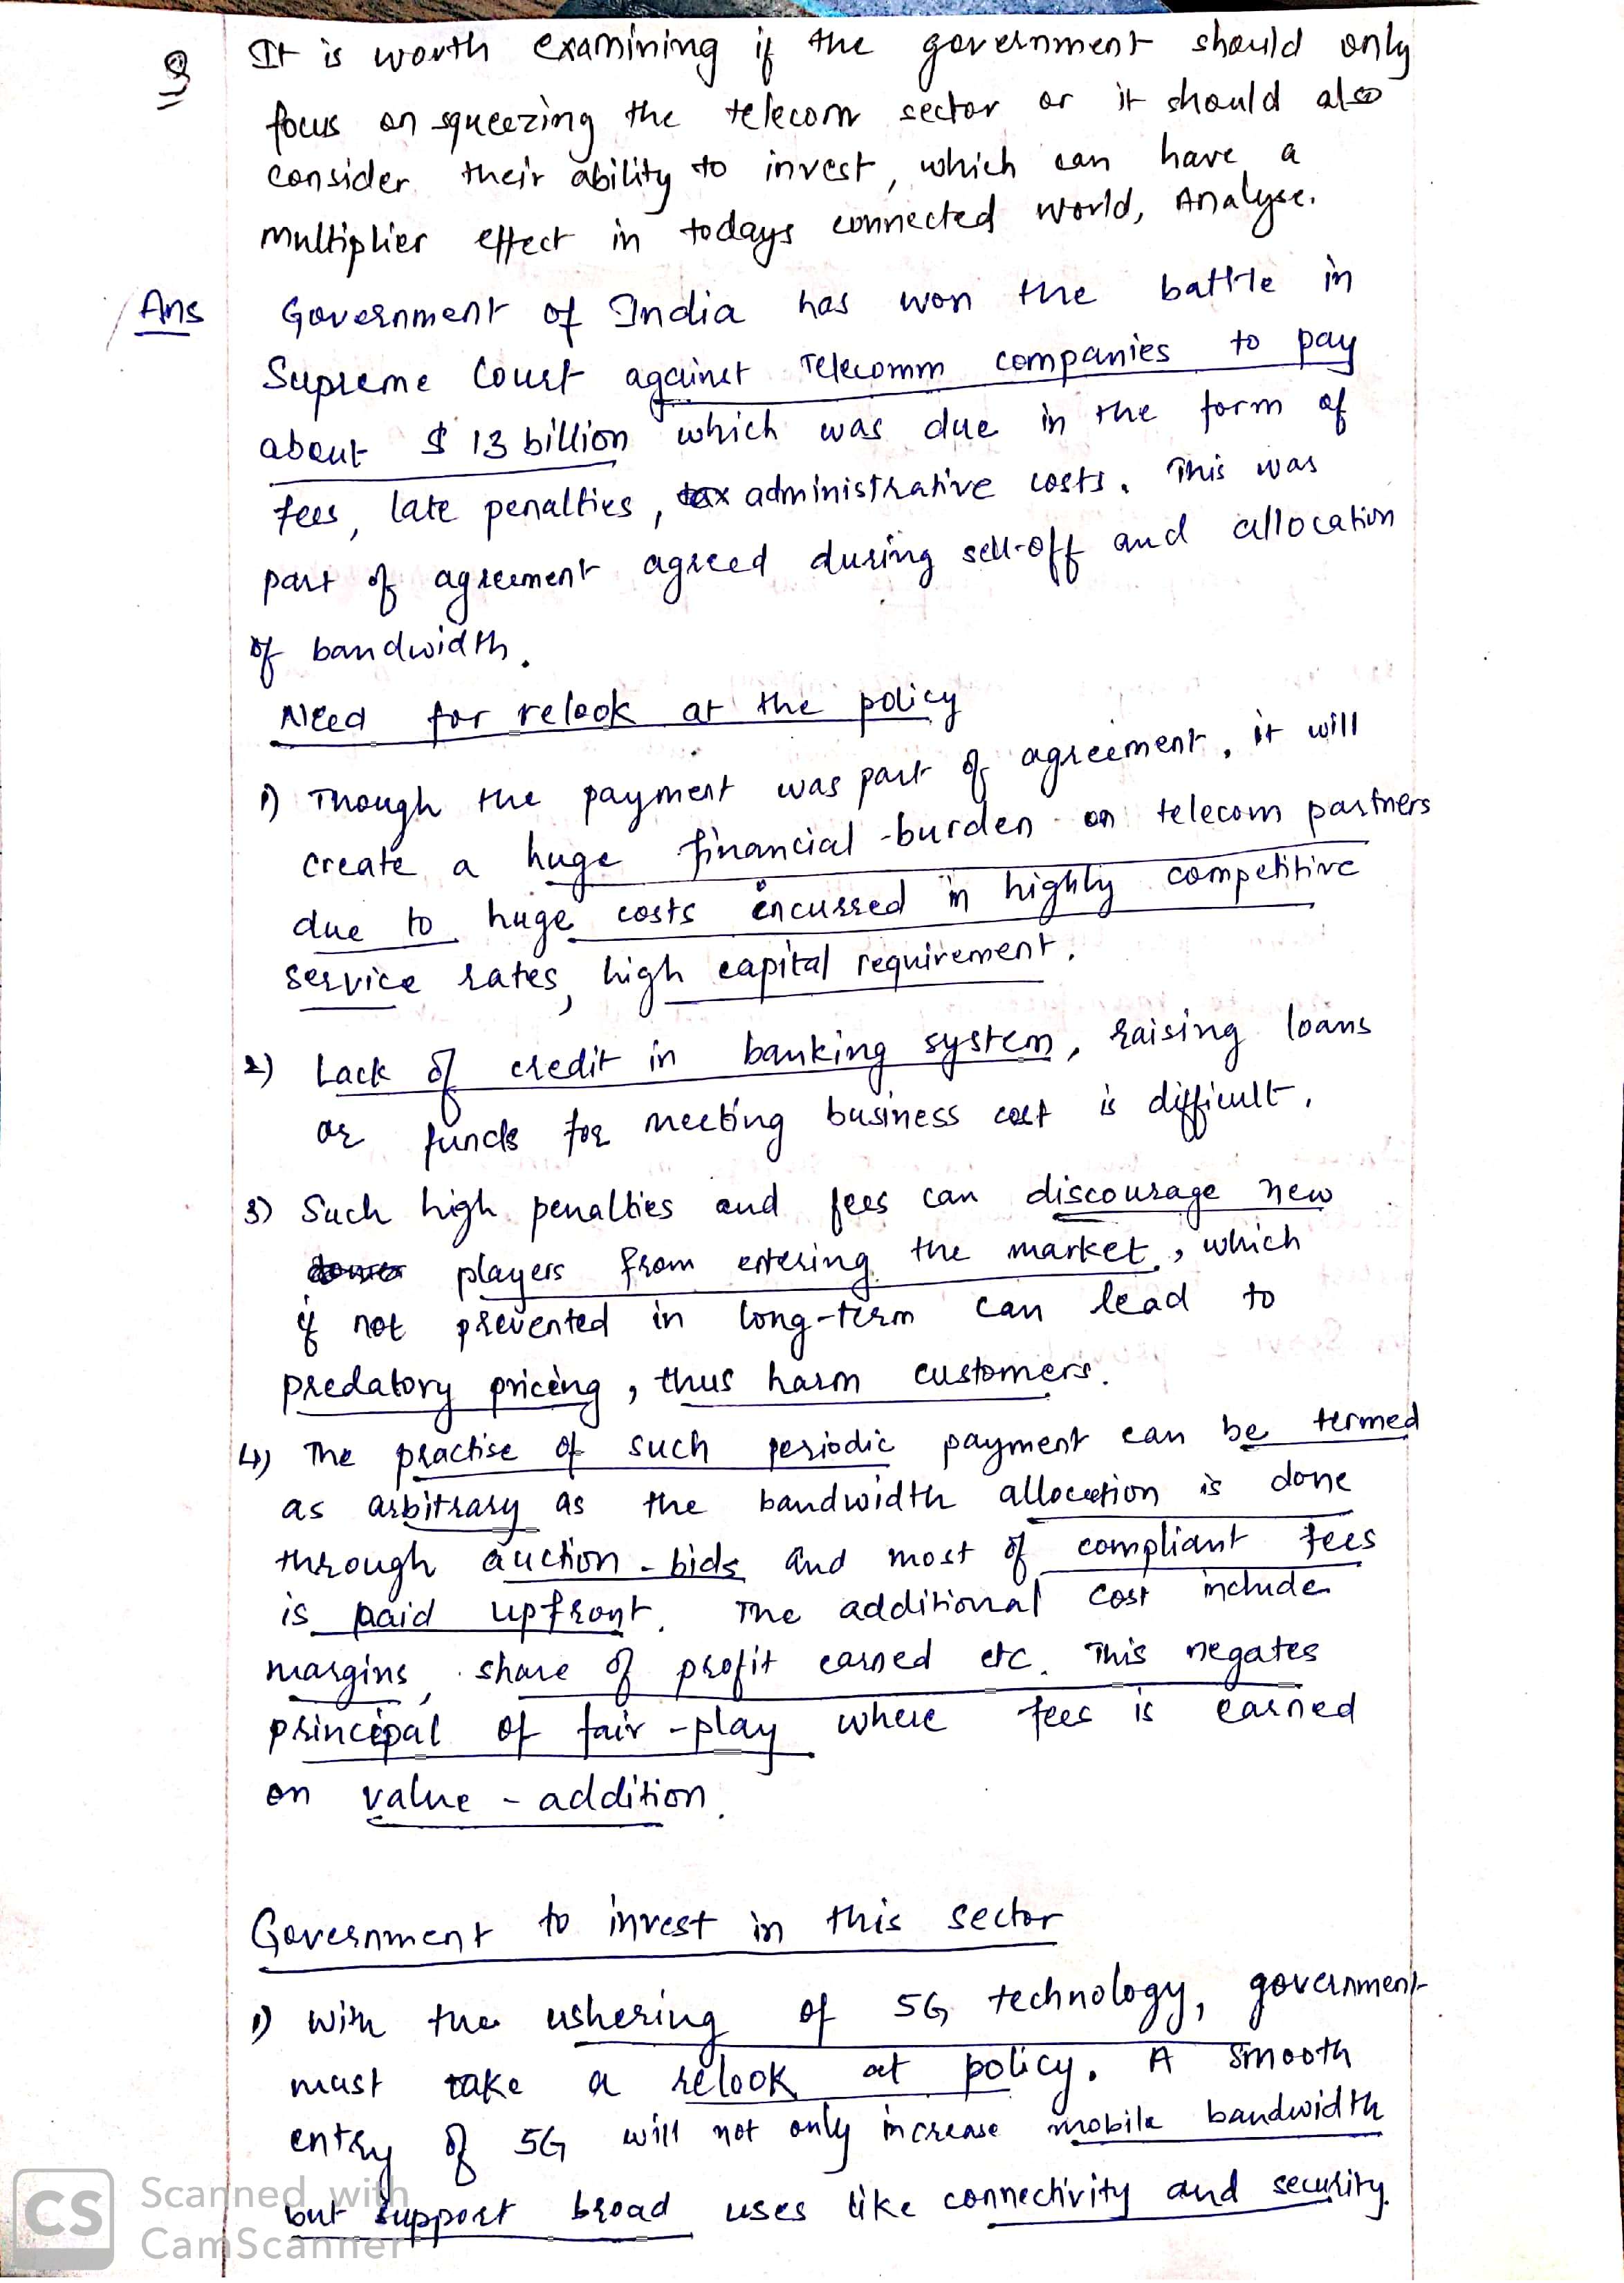 Q It is worth examining if the government should only
focus on squeezing the telecom sector or it should also
consider their ability to invest, which can have a
multiplier effect in todays connected world, Analyse.
Ans Government of India has won the battle in
Supreme Court against Telecomm companies to pay
about $ 13 billion which was due in the form of
fees, late penalties, tax administrative costs. This was
part of agreement agreed during sell-off and allocation
of bandwidth.
Need for relook at the policy
1) Though the payment was part of agreement, it will
create a huge financial burden on telecom partners
due to huge costs incurred in highly competitive
service rates, high capital requirement.
2) Lack of credit in banking system, raising loans
or funds for meeting business cost is difficult.
3) Such high penalties and fees can discourage new
players from entering the market, which
if not prevented in long-term can lead to
predatory pricing, thus harm customers.
4) The practise of such periodic payment can be termed
as arbitrary as the bandwidth allocation is done
through auction-bids and most of compliant fees
is paid upfront. The additional cost include
margins, share of profit earned etc. This negates
principal of fair-play where fees is earned
on value-addition.
Government to invest in this sector
1) With the ushering of 5G technology, government
must take a relook at policy. A smooth
entry of 5G will not only increase mobile bandwidth
but support broad uses like connectivity and security.
CS Scanned with
CamScanner